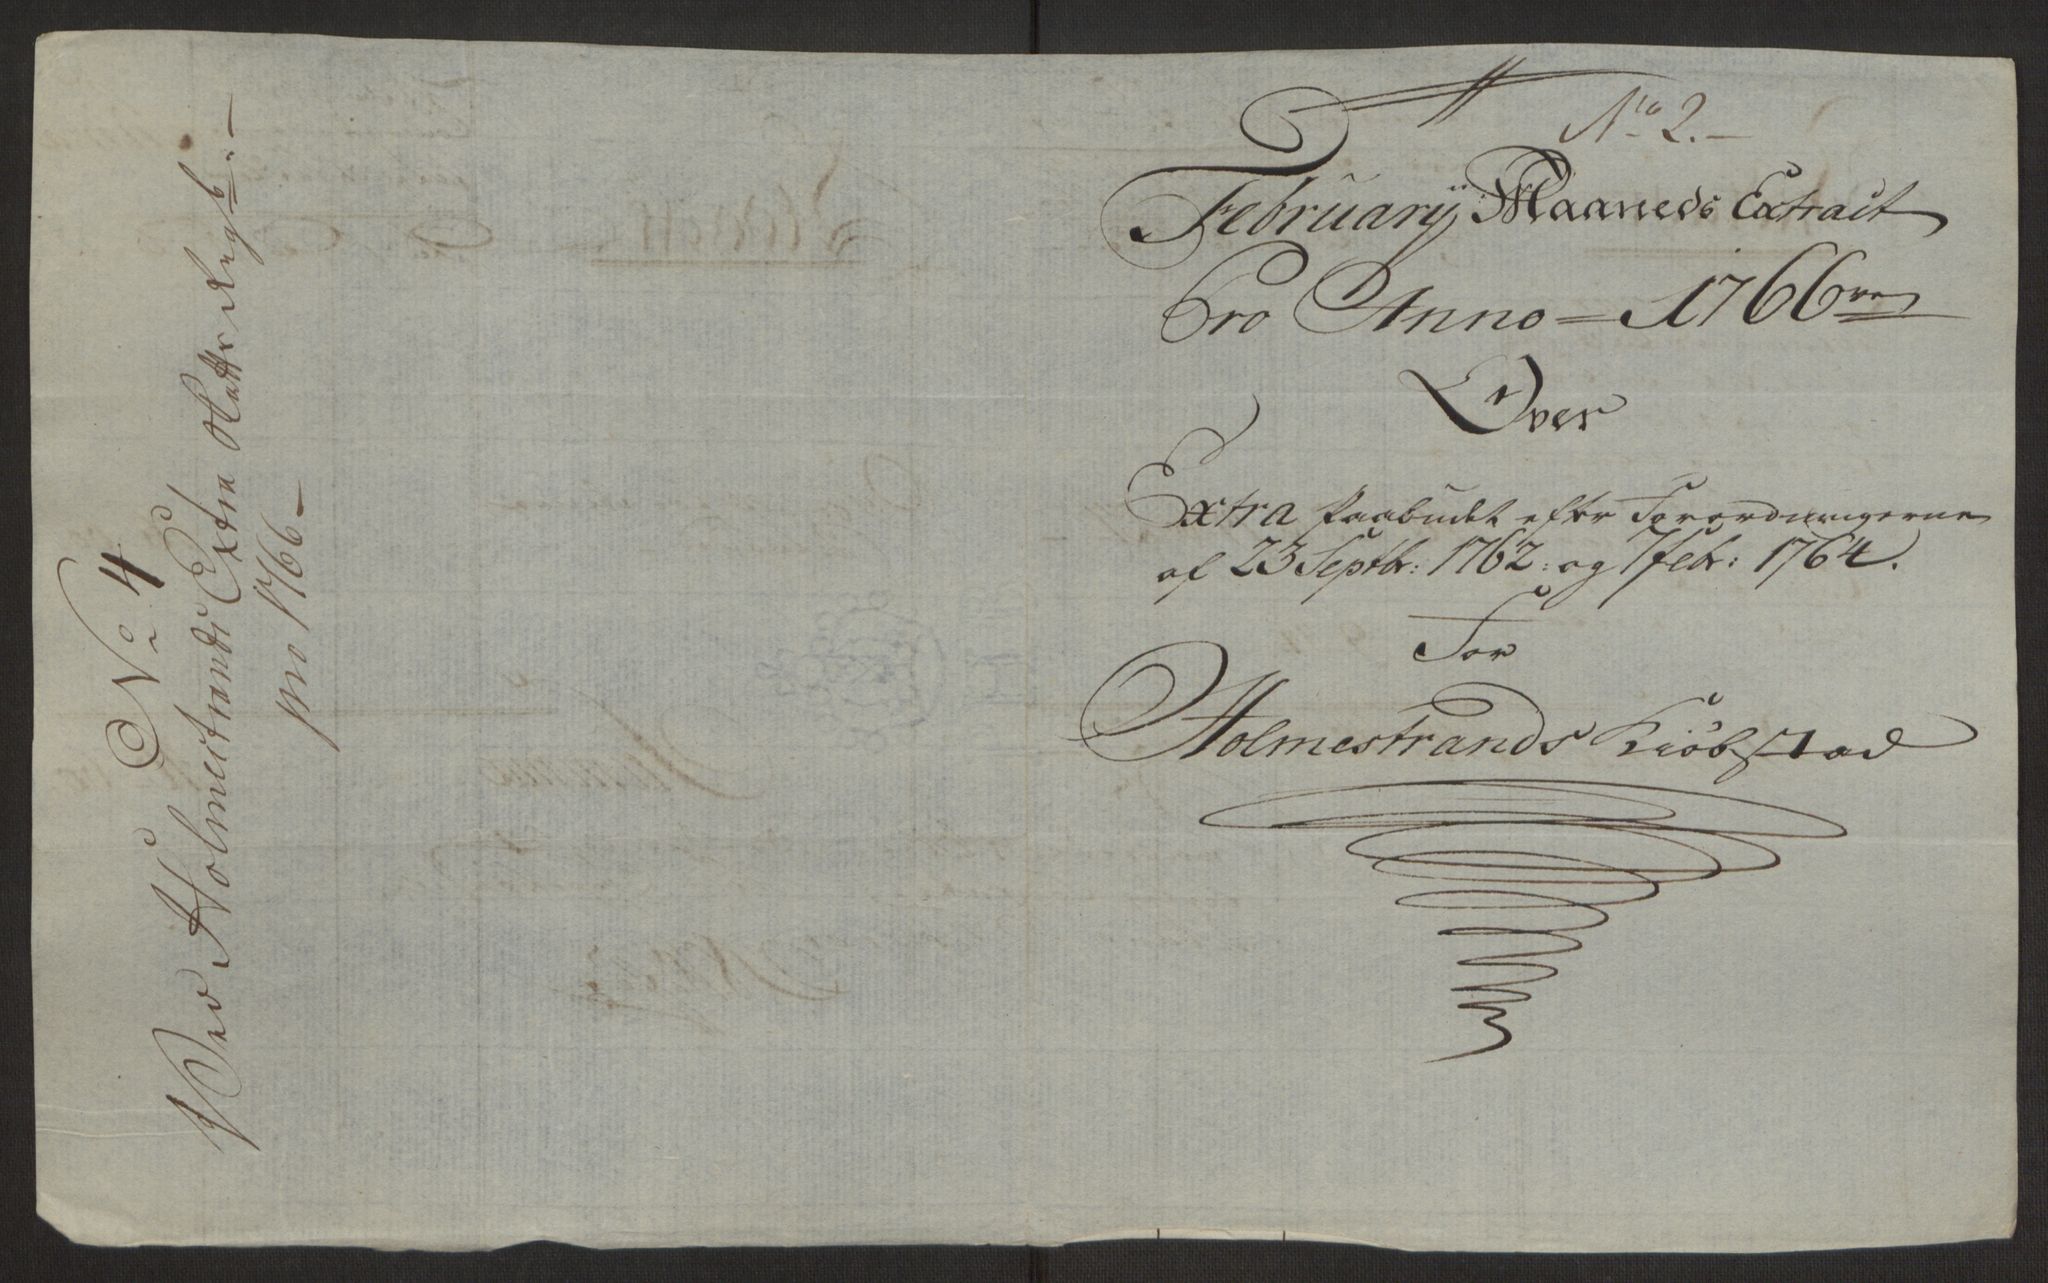 No 4
Ved Holmestrands Extra Skatts Regsk:
pro 1766
No 2.
February Maaneds Extract
Pro Anno 1766
Over
Extra Paabudet efter Forordningerne
af 23 Septbr: 1762: og 7 febr: 1764.
For
Holmestrands Kiöbstad